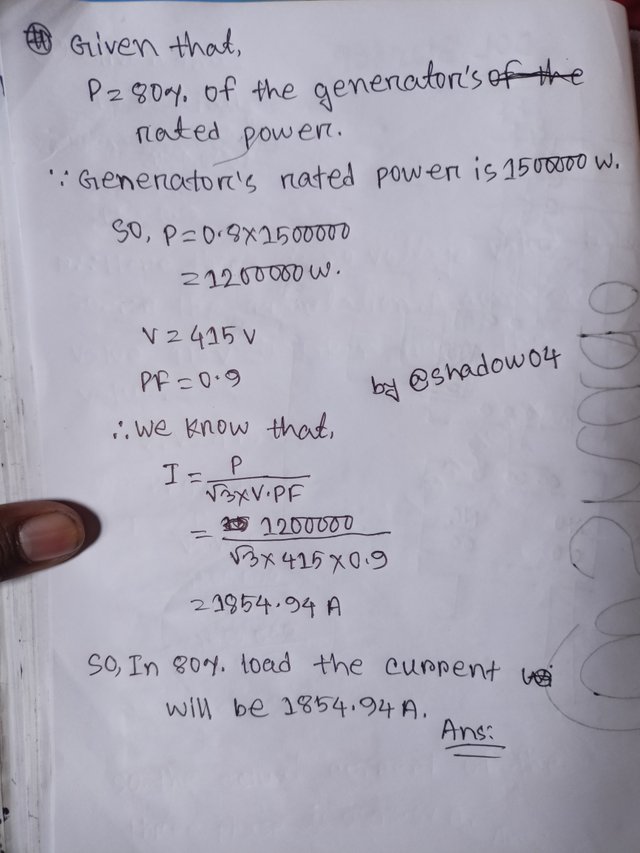 Given that,
P = 80% of the generator's of the
rated power.
∵ Generator's rated power is 1500000 W.
SO, P = 0.8 × 1500000
= 1200000 W.
V = 415 V
PF = 0.9
by @shadow04
∴ We know that,
I = P / √3 × V · PF
= 1200000 / √3 × 415 × 0.9
= 1854.94 A
SO, In 80% load the current
will be 1854.94 A.
Ans: